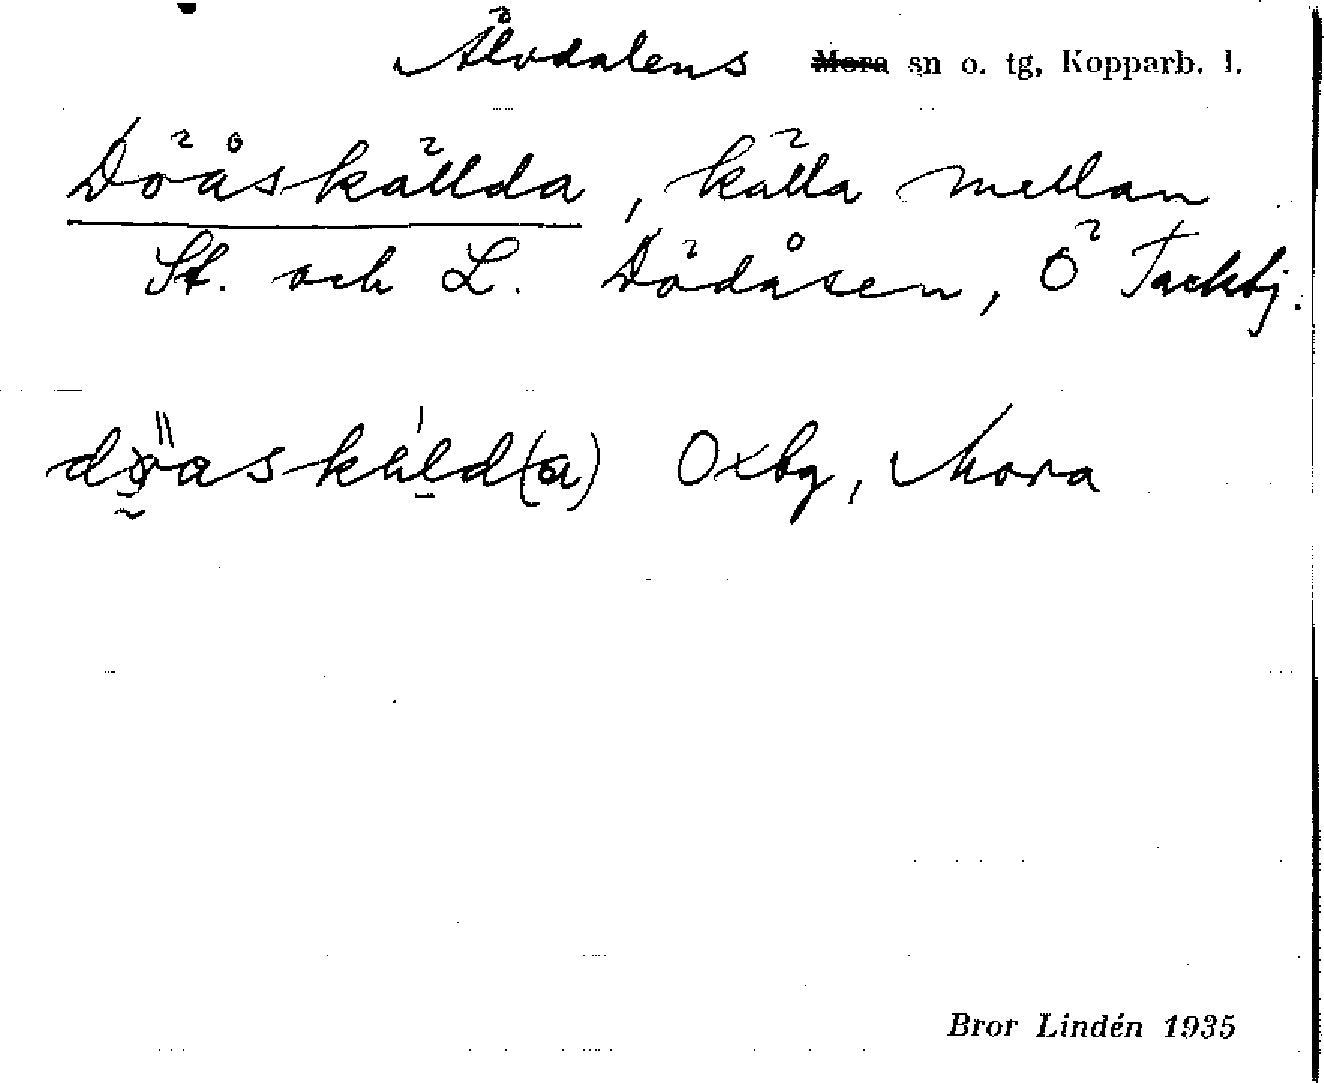 Älvdalens ~~Mora~~ sn o. tg, Kopparb. l.
Döåskällda, källa mellan
St. och L. Dödåsen, Ö Tackbj.
Oxbg, Mora
Bror Lindén 1935